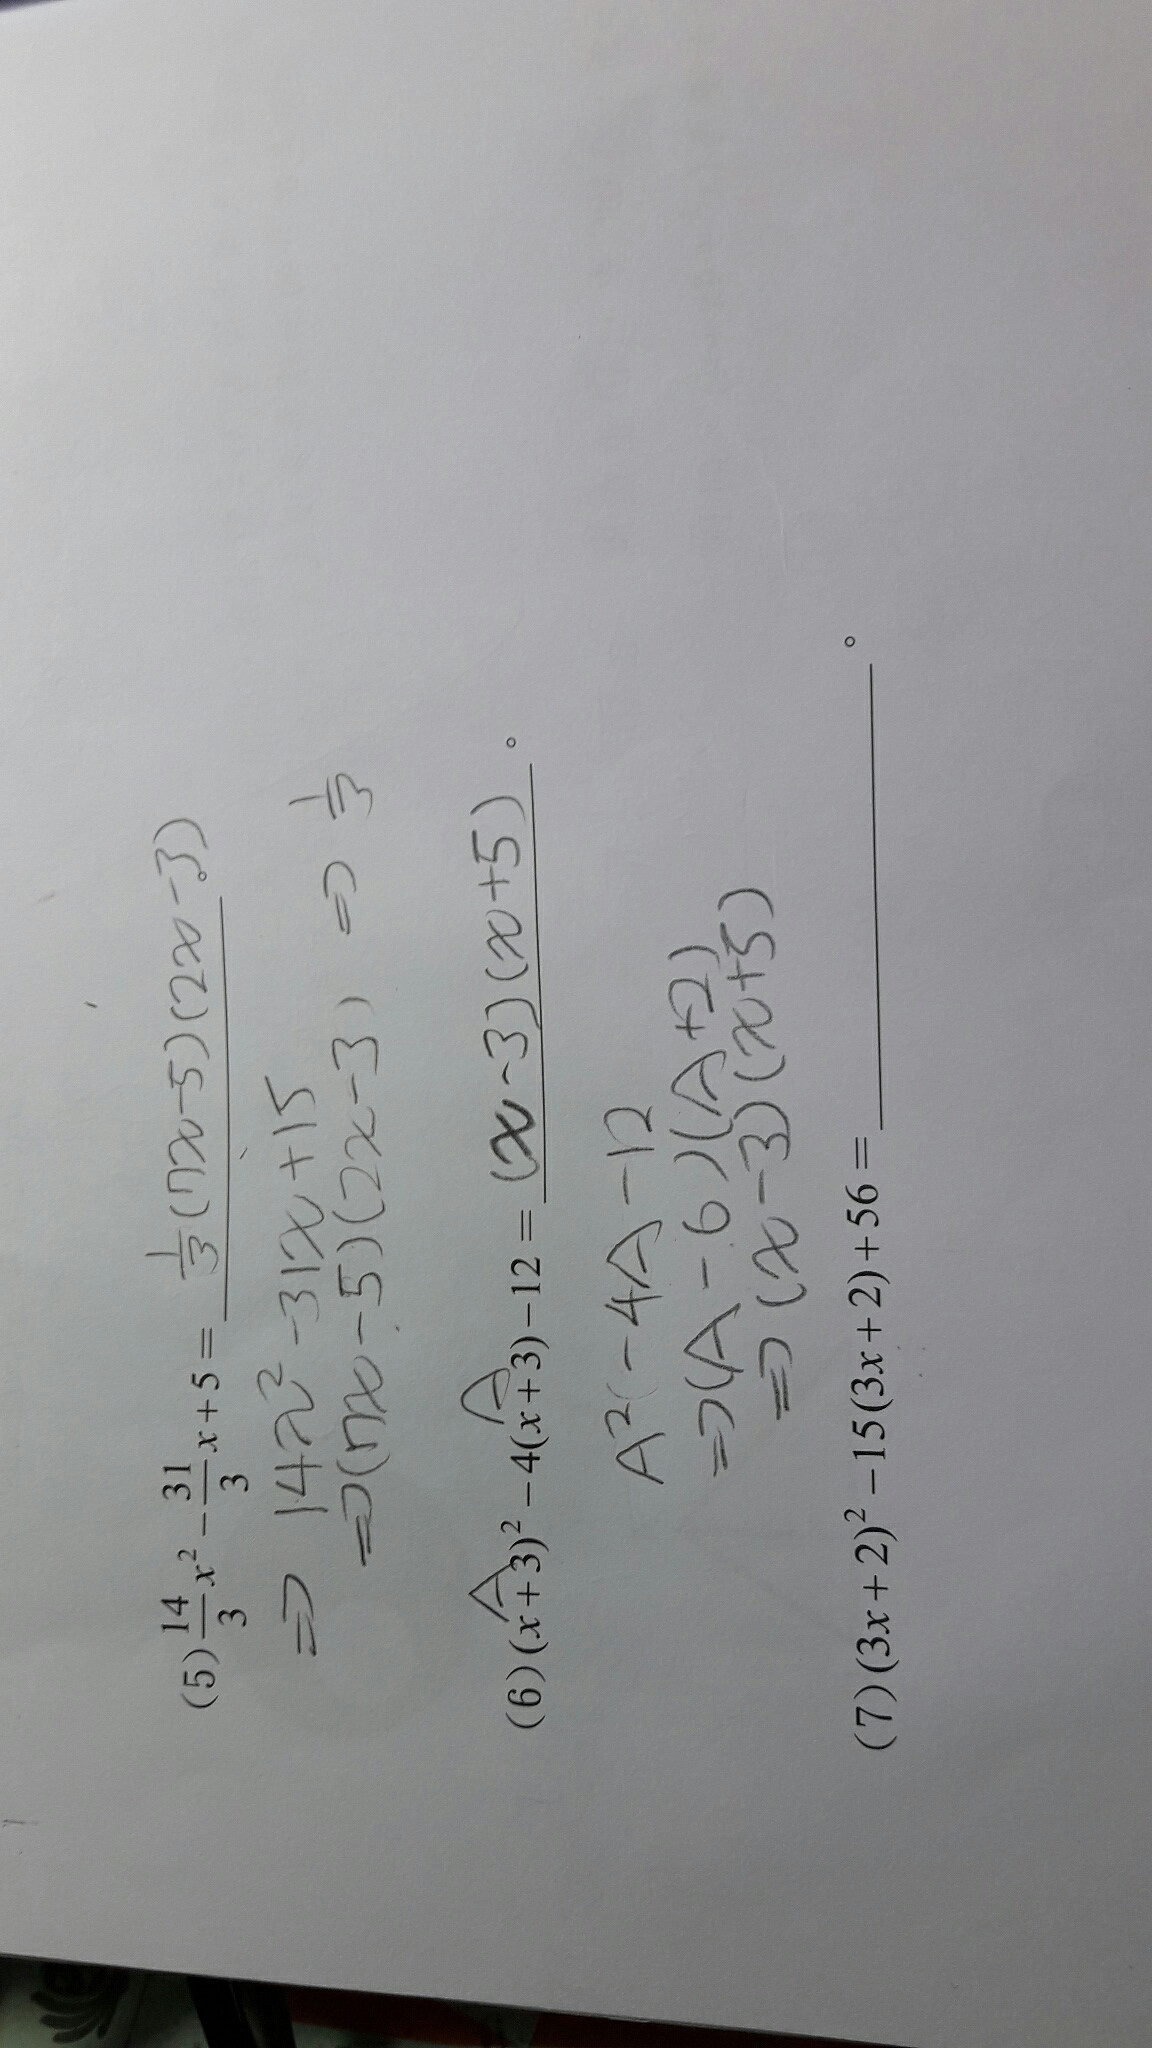 (5) 14/3 x² - 31/3 x + 5 = 1/3 (7x-5)(2x-3)。
⇒ 14x² - 31x + 15
⇒ (7x-5)(2x-3) ⇒ 1/3
A A
(6) (x+3)² - 4(x+3) - 12 = (x-3)(x+5)。
A² - 4A - 12
⇒ (A-6)(A+2)
⇒ (x-3)(x+5)
(7) (3x+2)² - 15(3x+2) + 56 = 。